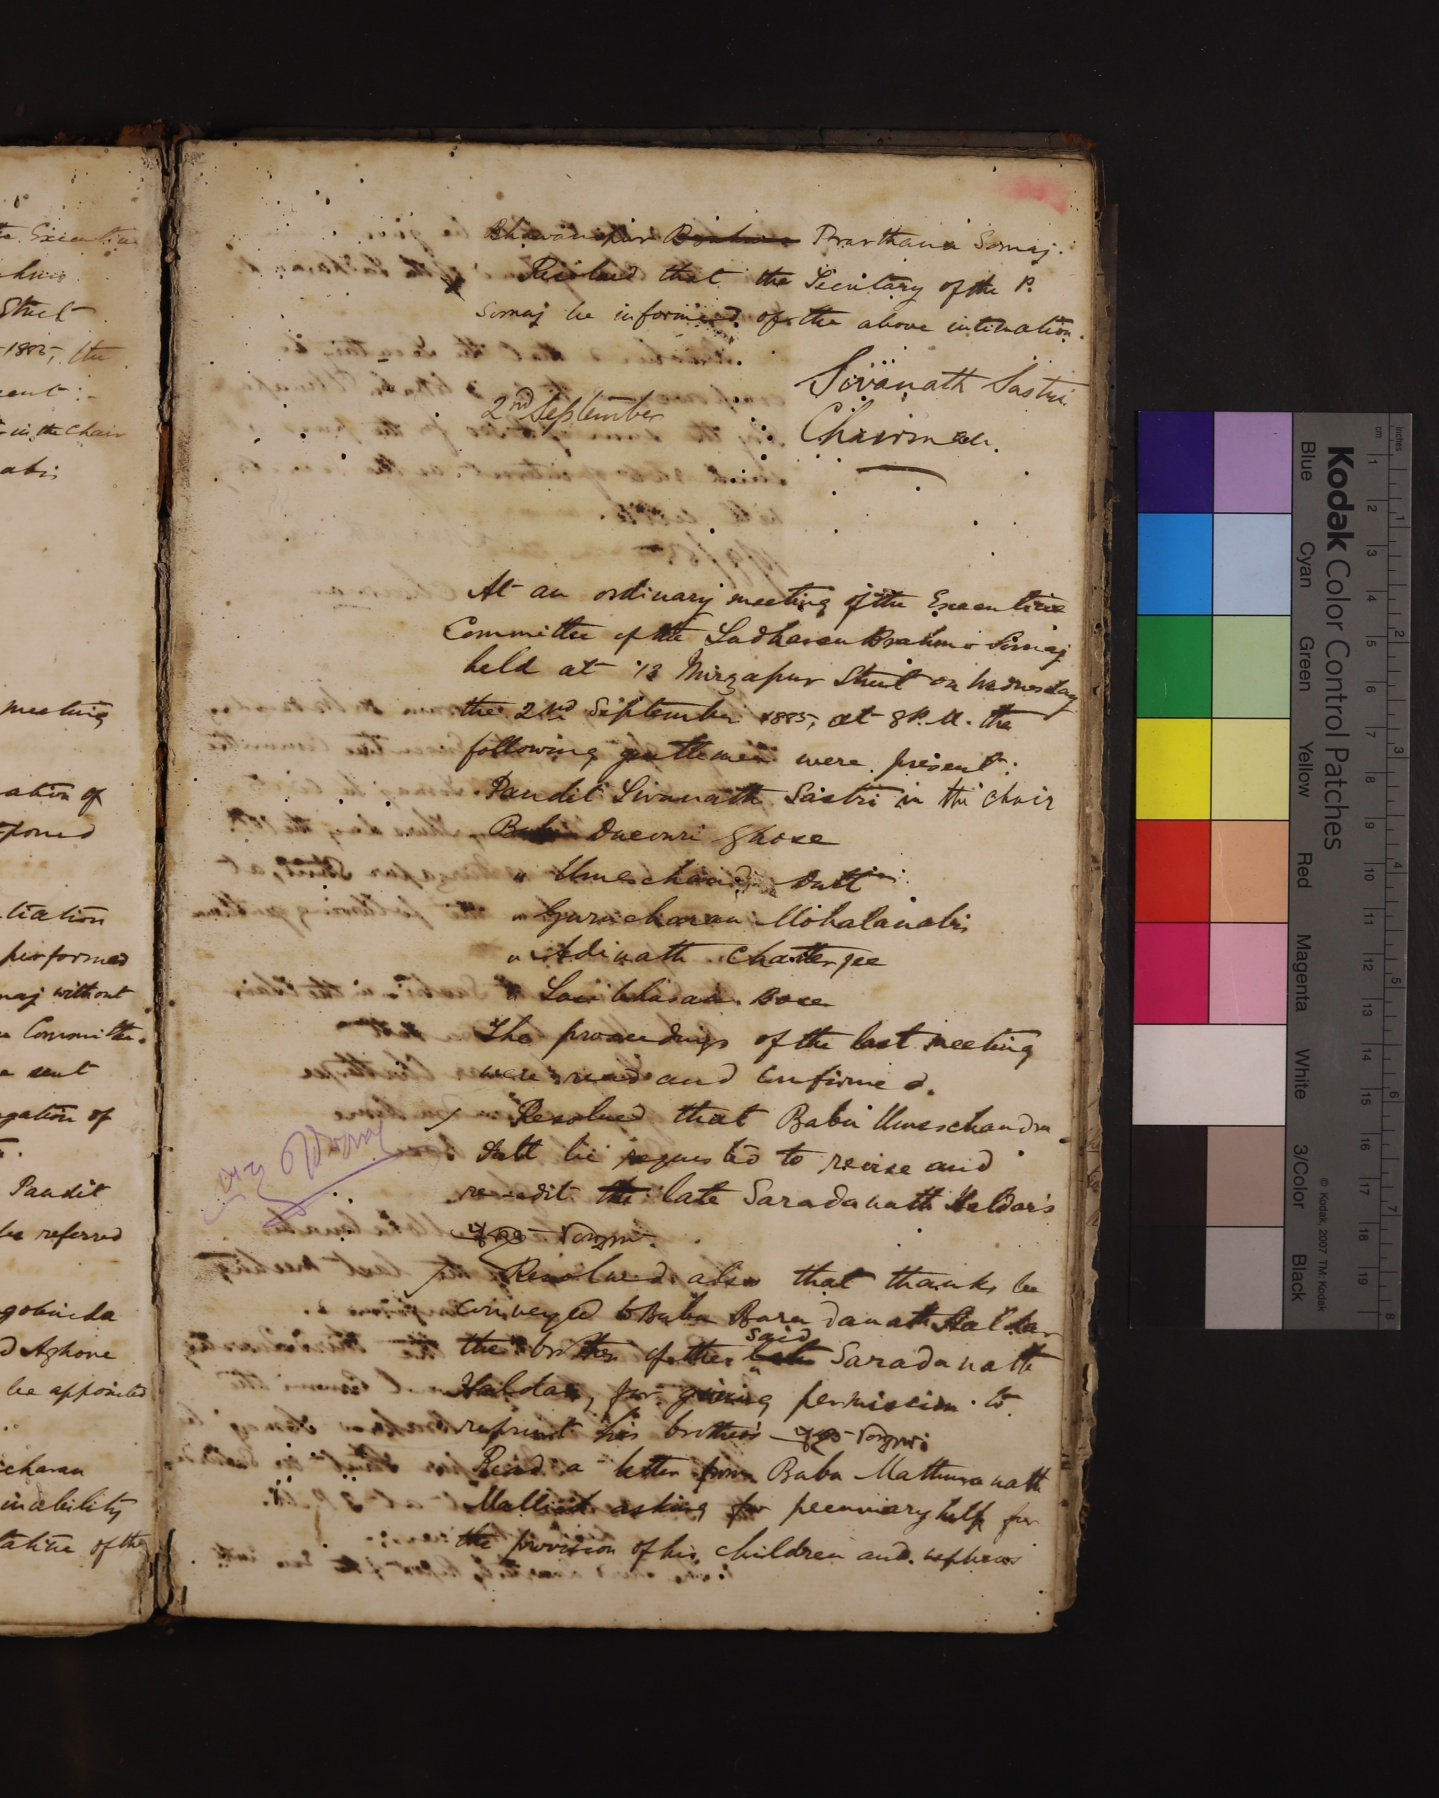 Bhawanipur Brahmo Prarthana Somaj.
Resolved that the Secretary of the P.
Somaj be informed of the above intimation.
Sivanath Sastri
2nd September
Chairman.
At an ordinary meeting of the Executive
Committee of the Sadharan Brahmo Somaj
held at 13 Mirzapur Street on Wednesday
the 2nd September 1885, at 8 P.M. the
following gentlemen were present:
Pandit Sivanath Sastri in the chair
Babu Ducouri Ghose
" Umeschandra Dutt
" Gurucharan Mohalanabis
" Adinath Chatterjee
" Sasibhusan Bose
The proceedings of the last meeting
were read and confirmed.
Resolved that Babu Umeschandra
Dutt be requested to revise and
re-edit the late Saradanath Haldar's
Resolved also that thanks be
conveyed to Babu Baradanath Haldar
the brother of the late said Saradanath
Haldar, for giving permission to
reprint his brother's
Read a letter from Babu Mathuranath
Mallick asking for pecuniary help for
the provision of his children and nephews
the Executive
Street
1885, the
present:-
in the chair
meeting
performed
Somaj without
Committee.
be sent
Pandit
be referred
be appointed
charan
inability
of the
Kodak Color Control Patches
Blue Cyan Green Yellow Red Magenta White 3/Color Black
© Kodak, 2007 TM: Kodak
inches 1 2 3 4 5 6 7 8
cm 1 2 3 4 5 6 7 8 9 10 11 12 13 14 15 16 17 18 19